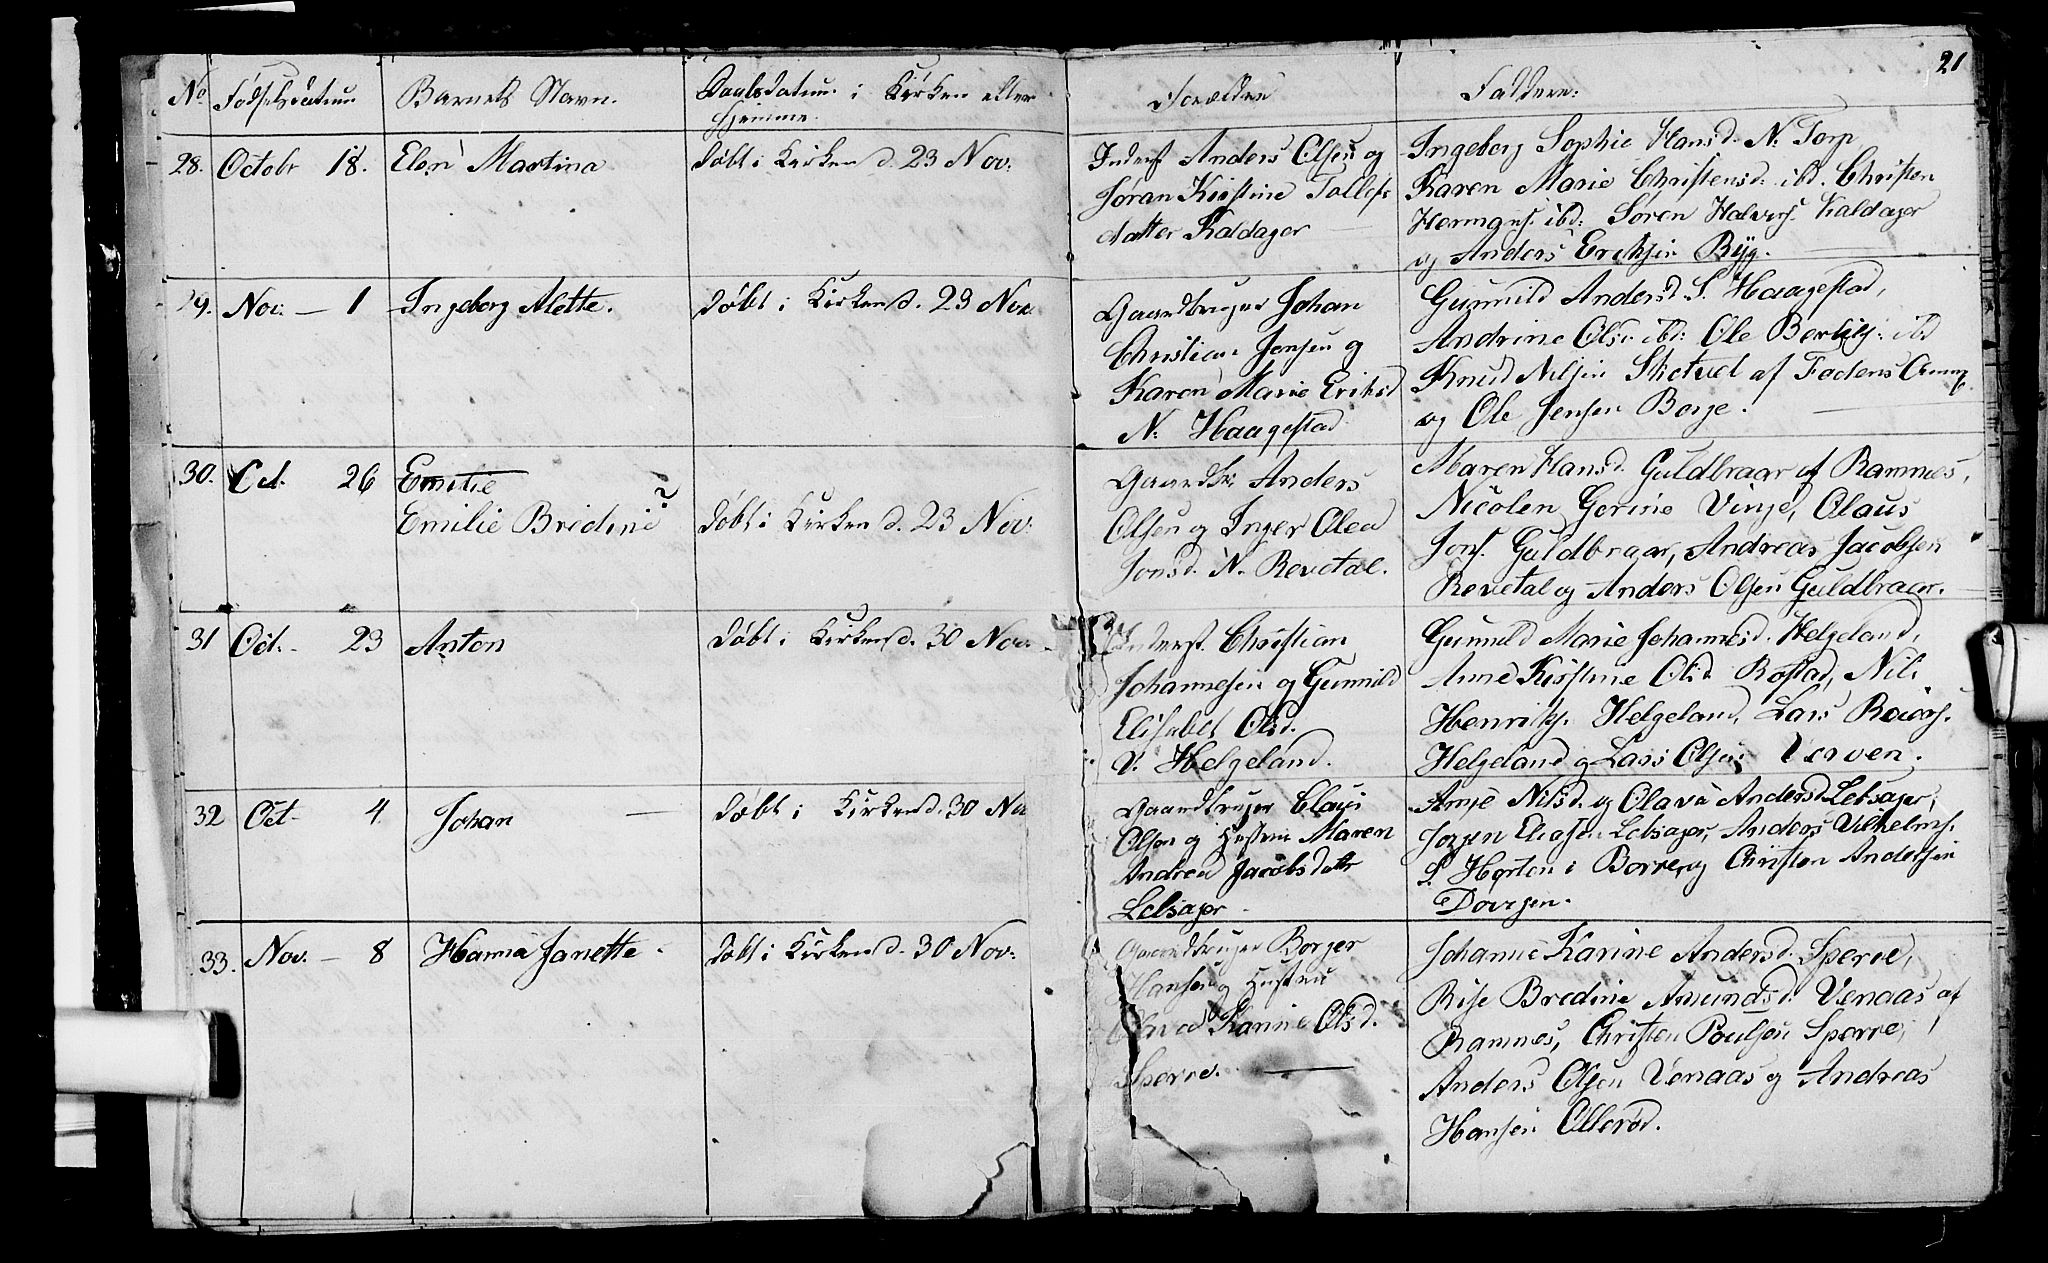 21
No Fødselsdatum Barnets Navn. Daabsdatum i Kirken eller Hjemme. Forældre Faddere:
28. Octobr 18. Elen Martina Døbt i Kirken d. 23 Nov:
Inderst Anders Olsen og
Søran Kirstine Tollefs
datter Kaldager
Ingeborg Sophie Hansd. N. Torp
Karen Marie Christensd. ibd. Christen
Hermans. ibd: Søren Halvors. Kaldager
og Anders Eriksen Byg.
29. Nov. — 1 Ingeborg Alette. Døbt i Kirken d. 23 Nov.
Gaardbruger Johan
Christian Jensen og
Karen Marie Eriksd
N. Haagestad
Gunnild Andersd. S. Haagestad,
Andrine Olsd. ibd: Ole Bertels. ibd
Knud Nilsen
og Ole Jensen Borge.
30. Oct. 26 Emilie
Emilie Bredine ? Døbt i Kirken d. 23 Nov:
Gaardbr. Anders
Olsen og Inger Olea
Jonsd. N. Revetal.
Maren Hansd. Guldbraar af Ramnes,
Nicolen Gorine Vinje, Olaus
Jons. Guldbraar, Andreas Jacobsen
Revetal og Anders Olsen Guldbraar.
31 Oct. — 23 Anton Døbt i Kirken d. 30 Nov.
Inderst. Christian
Johannesen og Gunnild
Elisabet Olsd.
V. Helgeland.
Gunnild Marie Johannesd. Helgeland,
Anne Kirstine Olsd. Rostad, Nils
Henriks. Helgeland, Lars
Helgeland og Lars Olsen Verven.
32 Oct — 4. Johan — Døbt i Kirken d. 30 Nov
Gaardbruger Claus
Olsen og Hustru Maren
Andrea Jacobsdatter
Lebsager.
Anne Nilsd. og Olava Andersd. Lebsager,
Jørgen Eliasen Lebsager, Anders Vilhelms.
S. Horten i Borre, og Christen Andersen
33. Nov. — 8 Hanna Janette. Døbt i Kirken d. 30 Nov:
Gaardbruger Borger
Hansen og Hustru
Olava Karine Olsd.
Sperre. —
Johanne Karine Andersd. Sperre,
Rise Bredine Amundsd. Venaas af
Ramnes, Christen Poulsen Sperre,
Anders Olsen Venaas og Andreas
Hansen Ollerød.